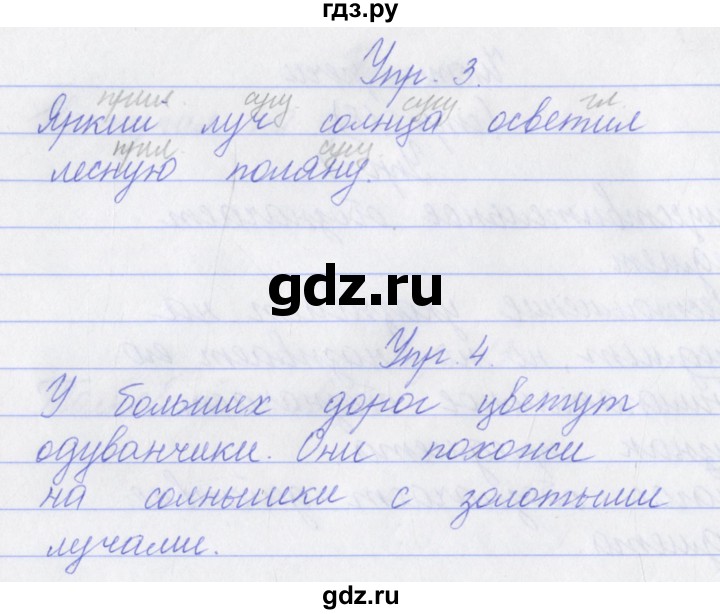 гдз.ру
Упр. 3.
прил. сущ. сущ. гл.
Яркий луч солнца осветил
прил. сущ.
лесную поляну.
gdz.ru
Упр. 4.
У больших дорог цветут
одуванчики. Они похожи
на солнышки с золотыми
лучами.
gdz.ru